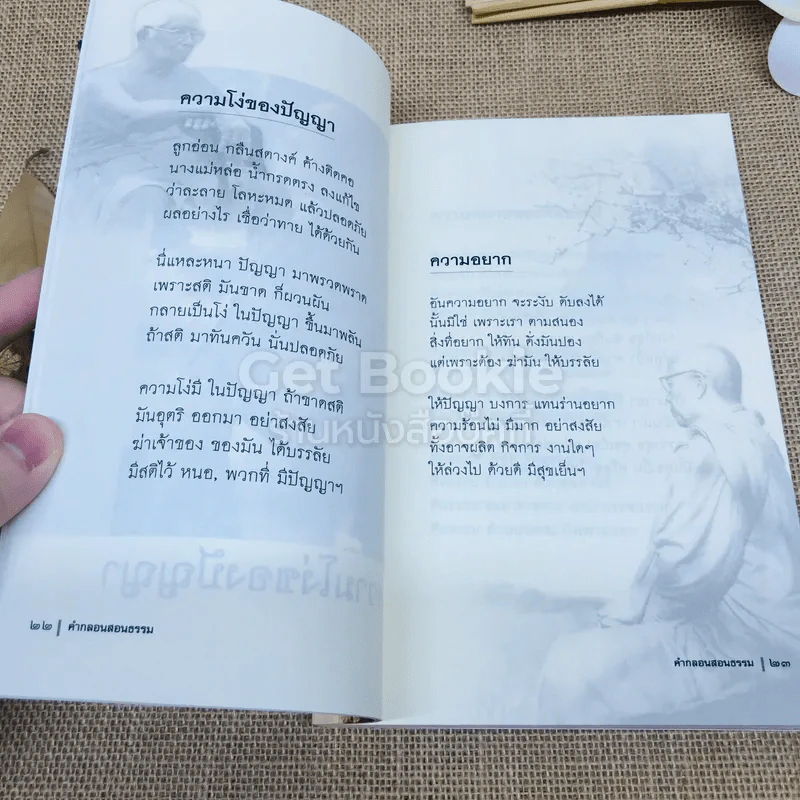 ความโง่ของปัญญา
ลูกอ่อน กลืนสตางค์ ค้างติดคอ
นางแม่หล่อ น้ำกรดตรง ลงแก้ไข
ว่าละลาย โลหะหมด แล้วปลอดภัย
ผลอย่างไร เชื่อว่าทาย ได้ด้วยกัน
นี่แหละหนา ปัญญา มาพรวดพราด
เพราะสติ มันขาด ก็ผวนผัน
กลายเป็นโง่ ในปัญญา ขึ้นมาพลัน
ถ้าสติ มาทันควัน นั่นปลอดภัย
ความโง่มี ในปัญญา ถ้าขาดสติ
มันอุตริ ออกมา อย่าสงสัย
ฆ่าเจ้าของ ของมัน ได้บรรลัย
มีสติไว้ หนอ, พวกที่ มีปัญญาฯ
ความโง่ของปัญญา
๒๒ | คำกลอนสอนธรรม
ความอยาก
อันความอยาก จะระงับ ดับลงได้
นั้นมิใช่ เพราะเรา ตามสนอง
สิ่งที่อยาก ให้ทัน ดั่งมันปอง
แต่เพราะต้อง ฆ่ามัน ให้บรรลัย
ให้ปัญญา บงการ แทนร่านอยาก
ความร้อนไม่ มีมาก อย่าสงสัย
ทั้งอาจผลิต กิจการ งานใดๆ
ให้ล่วงไป ด้วยดี มีสุขเย็นฯ
คำกลอนสอนธรรม | ๒๓
Get Bookie
ร้านหนังสือออนไลน์